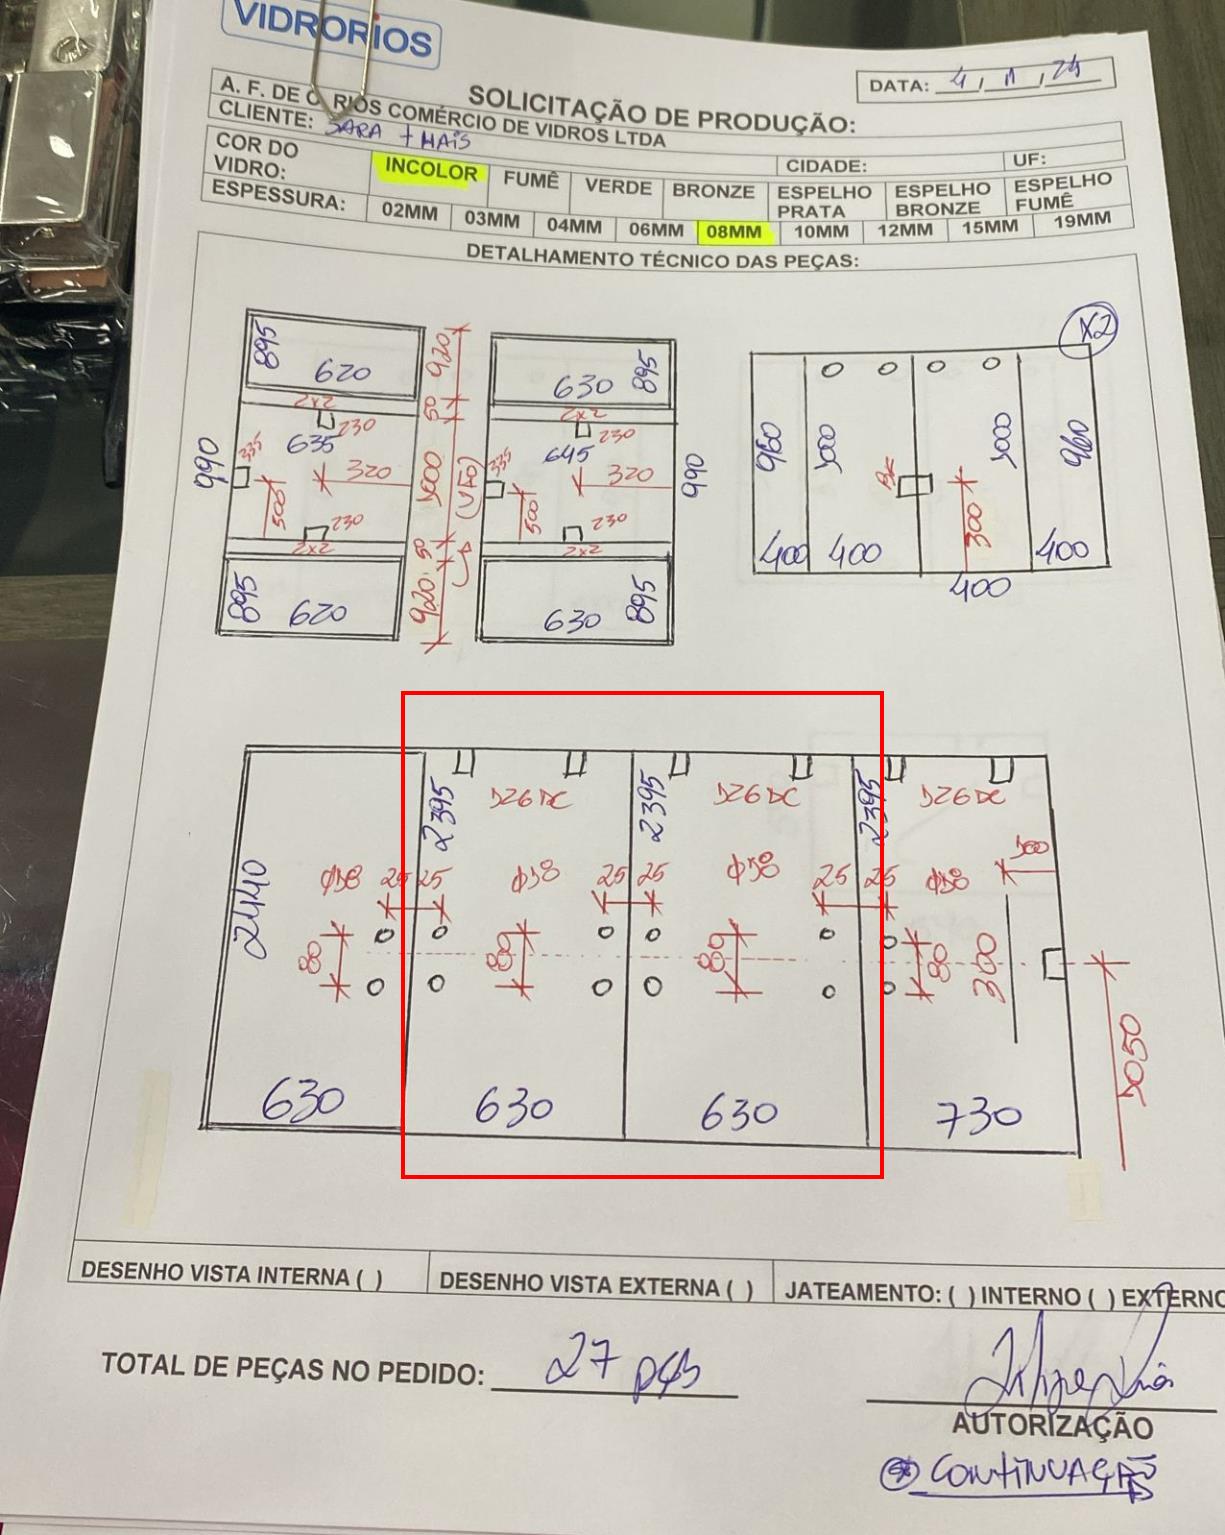 VIDRORIOS
SOLICITAÇÃO DE PRODUÇÃO:
DATA: 4 / 11 / 24
A. F. DE C. RIOS COMÉRCIO DE VIDROS LTDA
CLIENTE: SARA + MAIS
CIDADE: UF:
COR DO VIDRO: INCOLOR FUMÊ VERDE BRONZE ESPELHO PRATA ESPELHO BRONZE ESPELHO FUMÊ
ESPESSURA: 02MM 03MM 04MM 06MM 08MM 10MM 12MM 15MM 19MM
DETALHAMENTO TÉCNICO DAS PEÇAS:
X2
895 620 920 630 895
2x2 50 2x2
230 230
635 645
335 335
990 320 1000 320 990
(VÃO)
500 500
230 230
2x2 50 2x2
895 620 920 630 895
960 1000 1000 960
300
400 400 400
400
2395 2395 2395
1326 DC 1326 DC
2440 Ø18 25 25 Ø18 25 25 Ø18 25 25 Ø18
80 80 80 80 300
1050
630 630 630 730
DESENHO VISTA INTERNA ( ) DESENHO VISTA EXTERNA ( ) JATEAMENTO: ( ) INTERNO ( ) EXTERNO
TOTAL DE PEÇAS NO PEDIDO: 27 pçs
AUTORIZAÇÃO
CONTINUAÇÃO